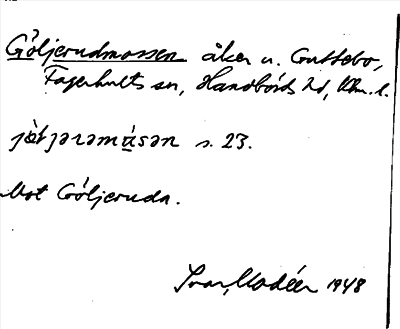 Göljerudmossen åker u. Guttebo,
Fagerhults sn, Handbörds hd, Klm. l.
jø̀ljərəmɑ́sən s. 23.
Mot Göljeruda.
Ivar Modéer 1948